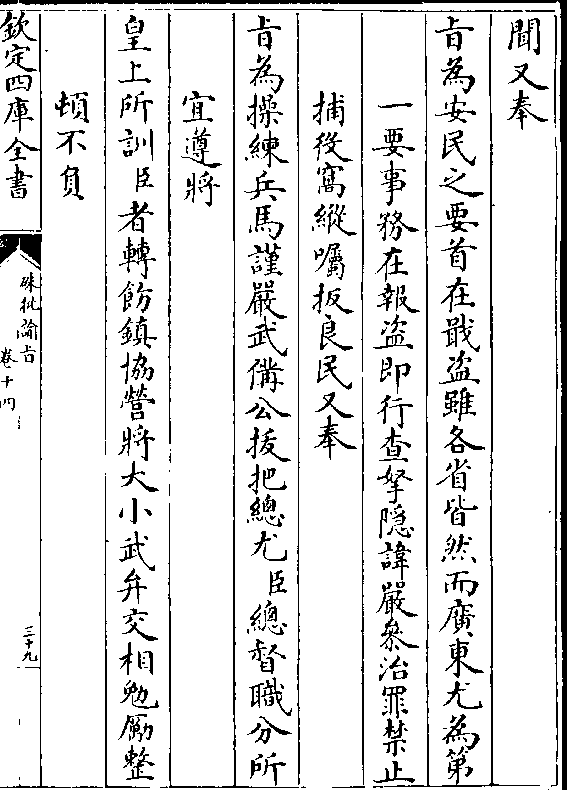 聞又奉
旨為安民之要首在戢盜雖各省皆然而廣東尤為第
一要事務在報盜即行查拏隱諱嚴叅治罪禁止
捕役窩縱囑扳良民又奉
旨為操練兵馬謹嚴武備公拔把總尤臣總督職分所
宜遵將
皇上所訓臣者轉飭鎮協營將大小武弁交相勉勵整
頓不負
欽定四庫全書
硃批諭旨
卷十四
三十九